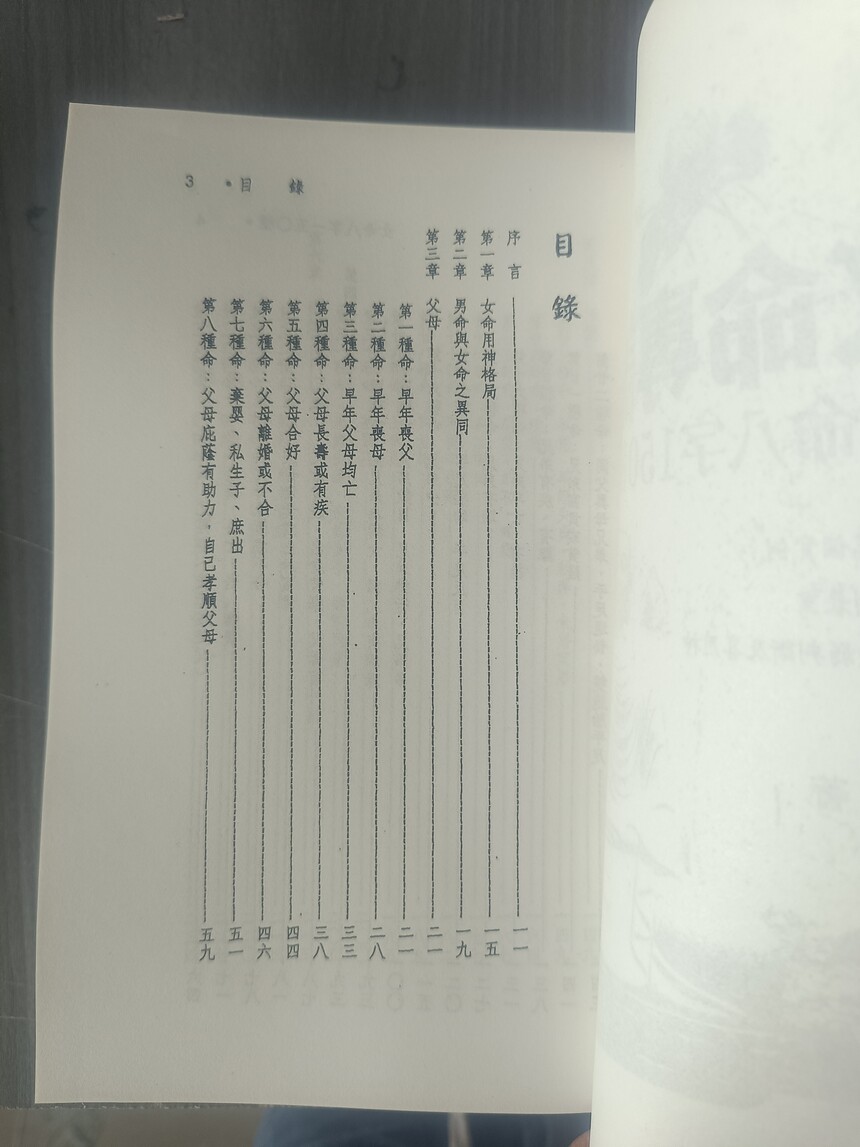 3 •目 錄
目 錄
序 言 一一
第一章 女命用神格局 一五
第二章 男命與女命之異同 一九
第三章 父母 二一
第一種命：早年喪父 二一
第二種命：早年喪母 二八
第三種命：早年父母均亡 三三
第四種命：父母長壽或有疾 三八
第五種命：父母合好 四四
第六種命：父母離婚或不合 四六
第七種命：棄嬰、私生子、庶出 五一
第八種命：父母庇蔭有助力，自己孝順父母 五九